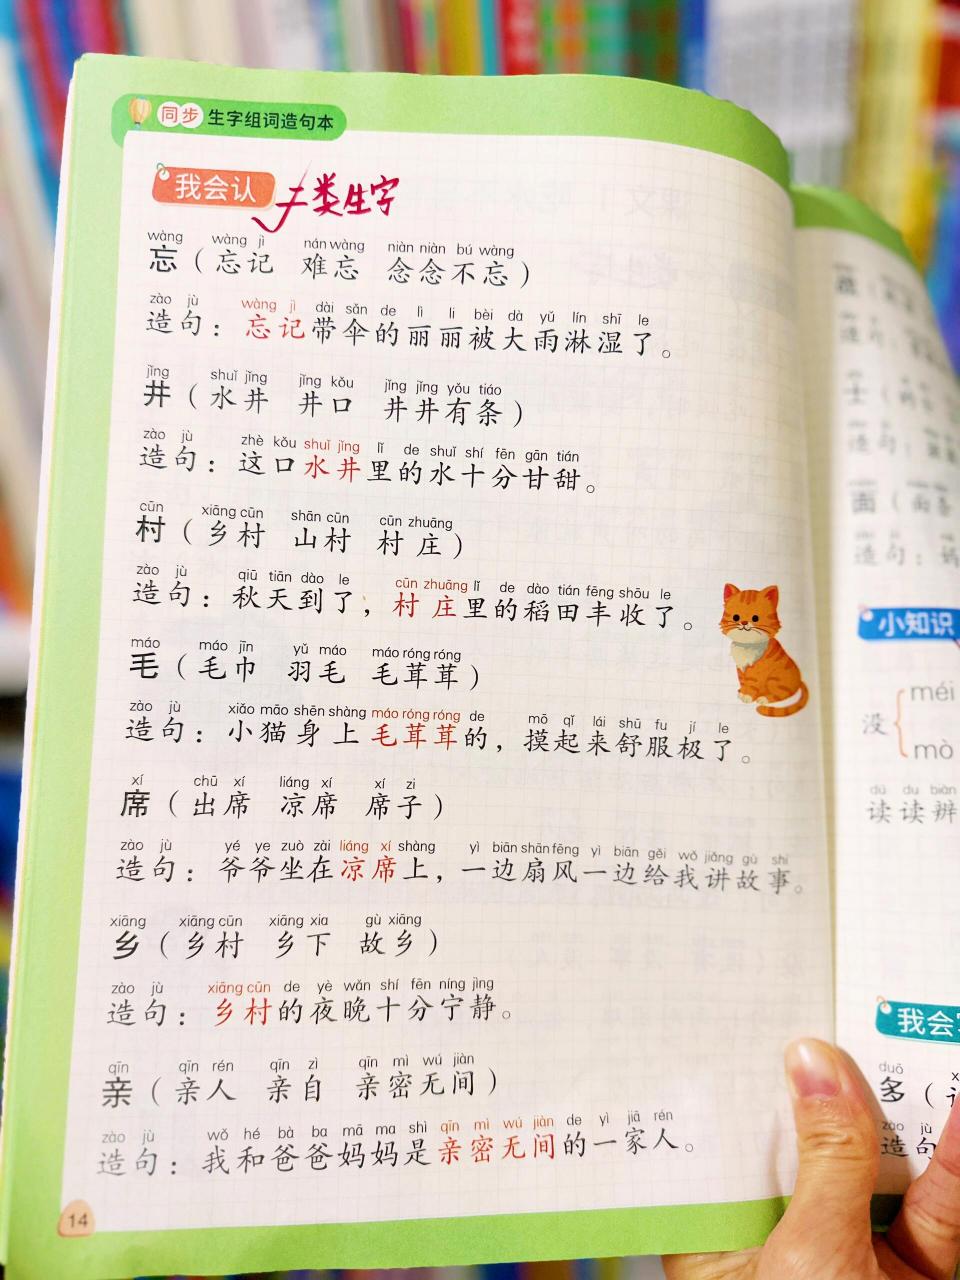 同步 生字组词造句本
我会认 一类生字
wàng wàng jì nán wàng niàn niàn bú wàng
忘（忘记 难忘 念念不忘）
zào jù wàng jì dài sǎn de lì li bèi dà yǔ lín shī le
造句：忘记带伞的丽丽被大雨淋湿了。
jǐng shuǐ jǐng jǐng kǒu jǐng jǐng yǒu tiáo
井（水井 井口 井井有条）
zào jù zhè kǒu shuǐ jǐng lǐ de shuǐ shí fēn gān tián
造句：这口水井里的水十分甘甜。
cūn xiāng cūn shān cūn cūn zhuāng
村（乡村 山村 村庄）
zào jù qiū tiān dào le cūn zhuāng lǐ de dào tián fēng shōu le
造句：秋天到了，村庄里的稻田丰收了。
máo máo jīn yǔ máo máo róng róng
毛（毛巾 羽毛 毛茸茸）
zào jù xiǎo māo shēn shàng máo róng róng de mō qǐ lái shū fu jí le
造句：小猫身上毛茸茸的，摸起来舒服极了。
xí chū xí liáng xí xí zi
席（出席 凉席 席子）
zào jù yé ye zuò zài liáng xí shàng yì biān shān fēng yì biān gěi wǒ jiǎng gù shi
造句：爷爷坐在凉席上，一边扇风一边给我讲故事。
xiāng xiāng cūn xiāng xia gù xiāng
乡（乡村 乡下 故乡）
zào jù xiāng cūn de yè wǎn shí fēn níng jìng
造句：乡村的夜晚十分宁静。
qīn qīn rén qīn zì qīn mì wú jiàn
亲（亲人 亲自 亲密无间）
zào jù wǒ hé bà ba mā ma shì qīn mì wú jiàn de yì jiā rén
造句：我和爸爸妈妈是亲密无间的一家人。
14
士（
造句：
面（面条
造句：妈
小知识
méi
没
mò
dú du biàn
读读辨
我会
duō
多（
zào jù
造句